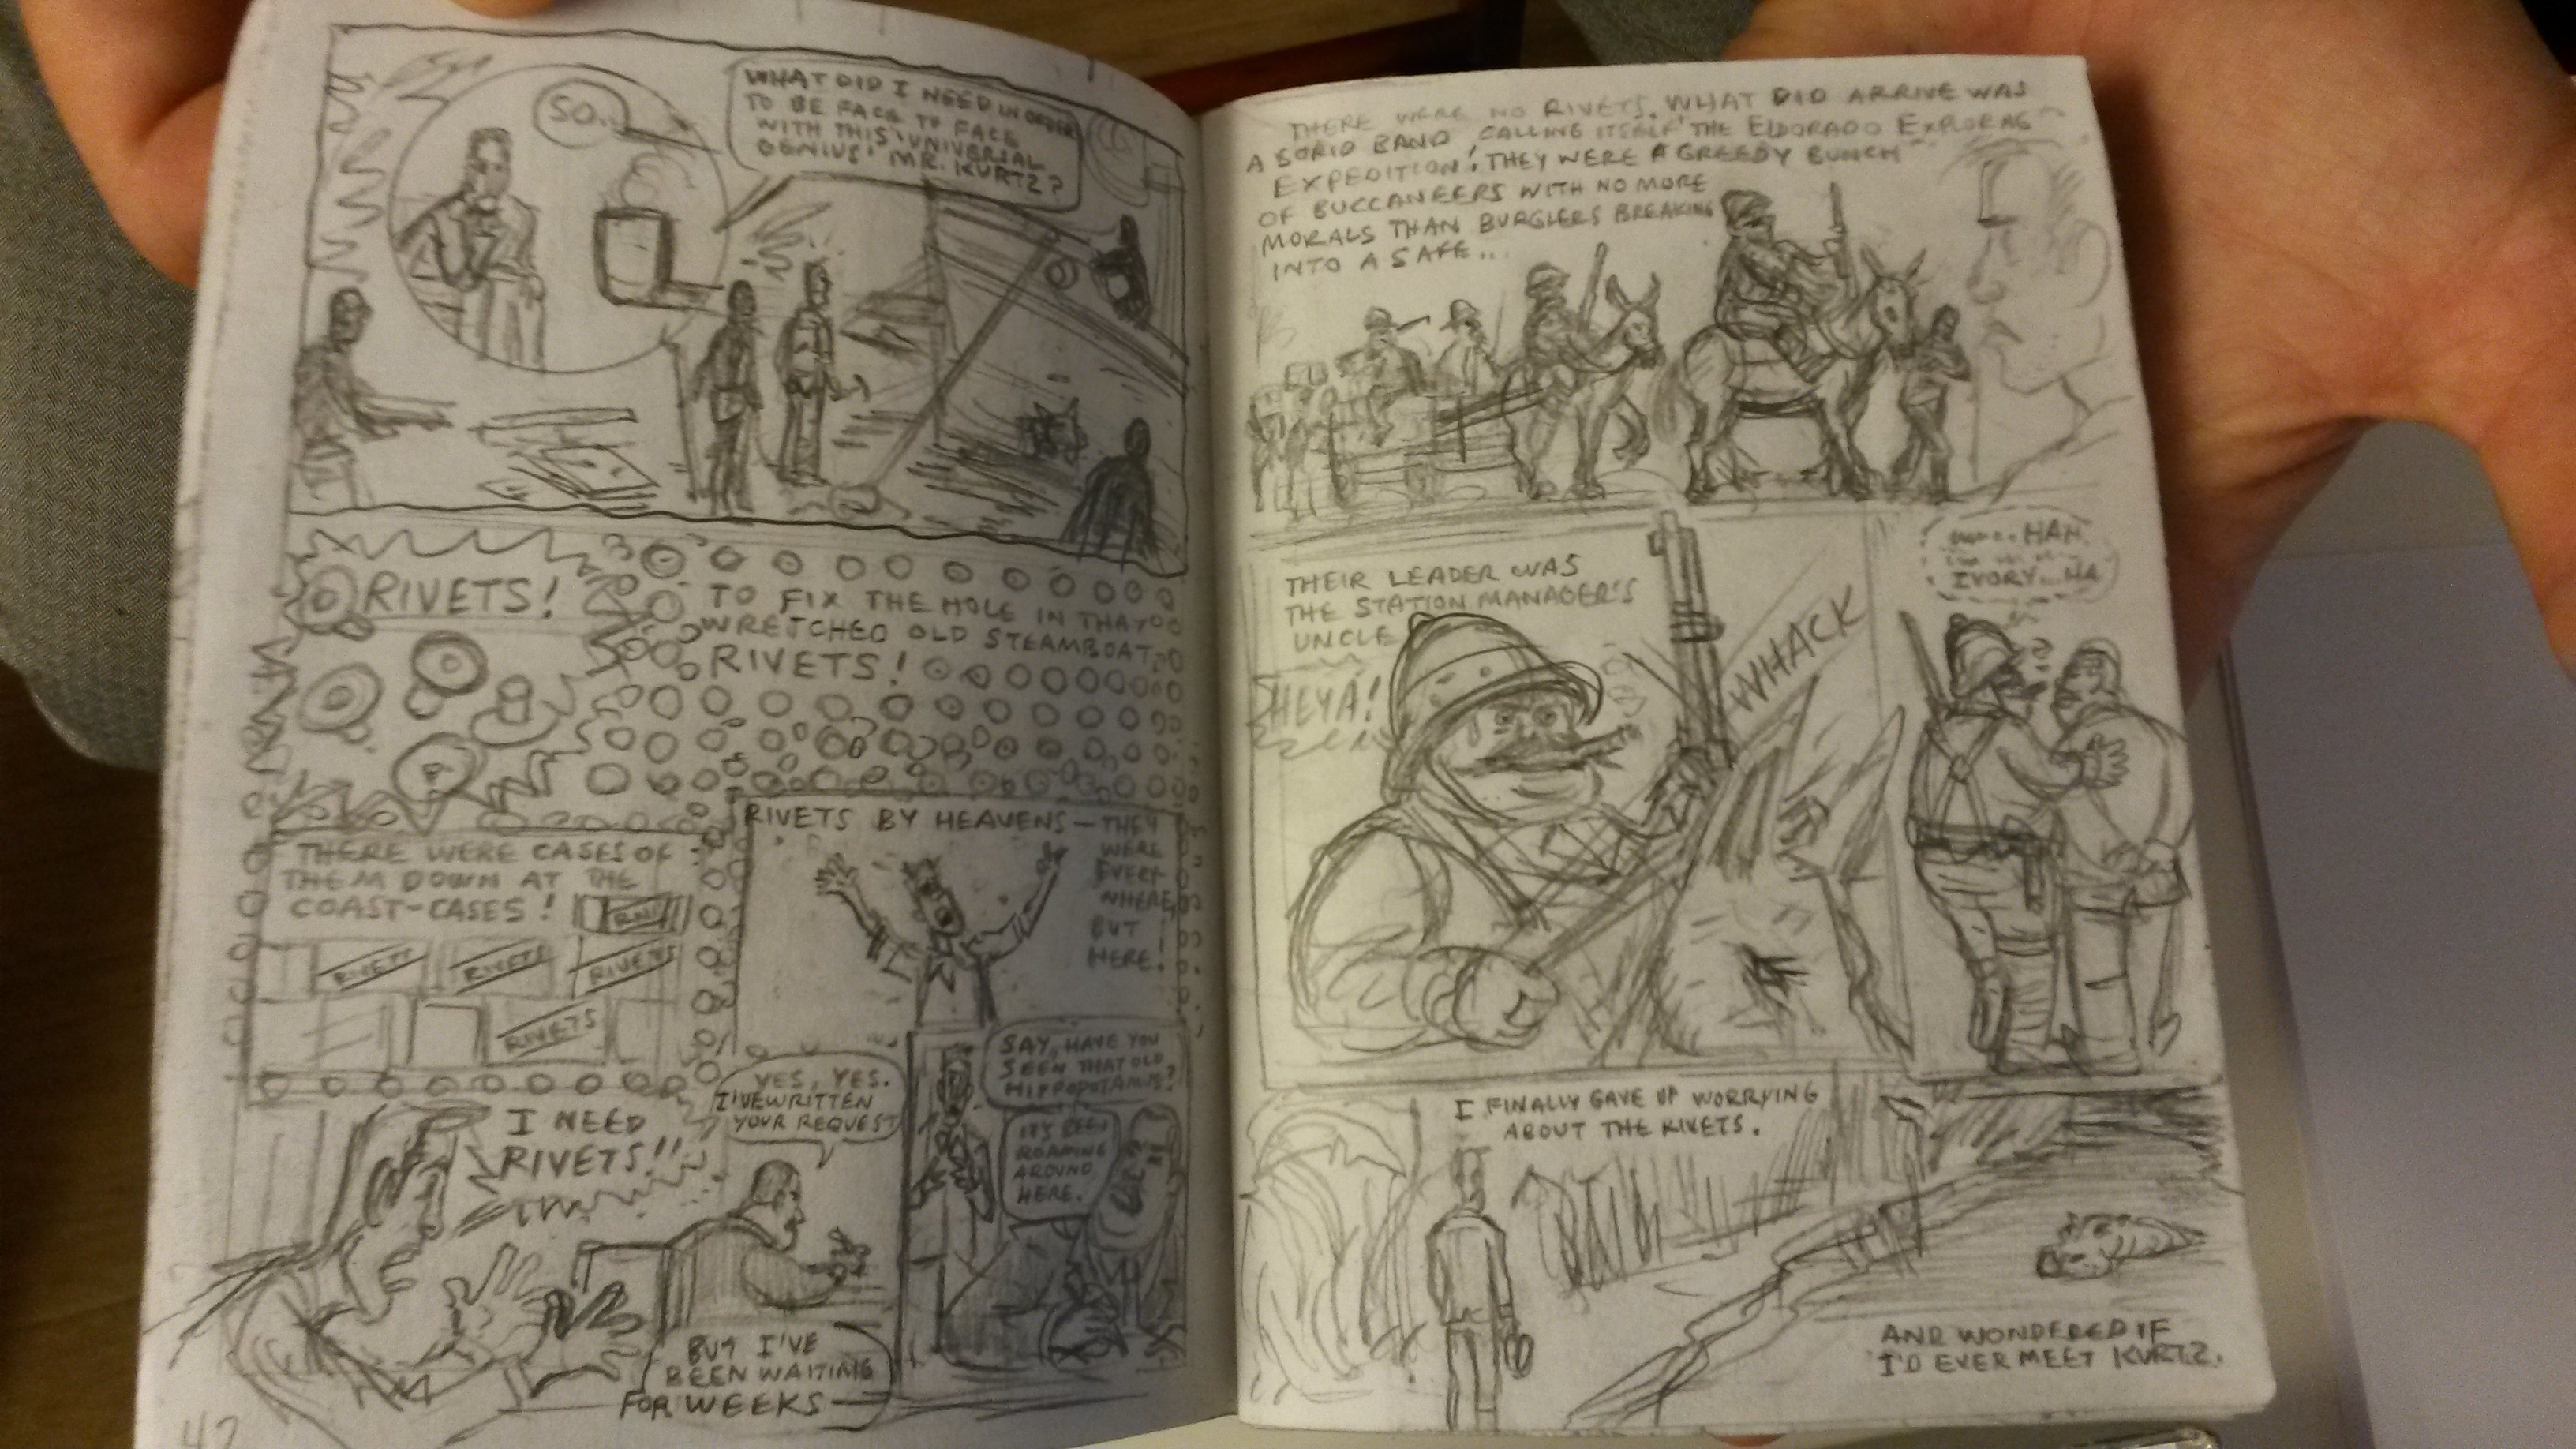 SO..
WHAT DID I NEED IN ORDER
TO BE FACE TO FACE
WITH THIS 'UNIVERSAL
GENIUS' MR. KURTZ?
RIVETS!
TO FIX THE HOLE IN THAT
WRETCHED OLD STEAMBOAT,
RIVETS!
THERE WERE CASES OF
THEM DOWN AT THE
COAST-CASES!
RIVETS
RIVETS
RIVETS
RIVETS
RIVETS BY HEAVENS — THEY
WERE
EVERY
WHERE
BUT
HERE!
I NEED
RIVETS!!
YES, YES.
I'VE WRITTEN
YOUR REQUEST
BUT I'VE
BEEN WAITING
FOR WEEKS —
SAY, HAVE YOU
SEEN THAT OLD
HIPPOPOTAMUS?
IT'S BEEN
ROAMING
AROUND
HERE.
42
THERE WERE NO RIVETS. WHAT DID ARRIVE WAS
A SORID BAND, CALLING ITSELF 'THE ELDORADO EXPLORING
EXPEDITION'. THEY WERE A GREEDY BUNCH
OF BUCCANEERS WITH NO MORE
MORALS THAN BURGLERS BREAKING
INTO A SAFE...
THEIR LEADER WAS
THE STATION MANAGER'S
UNCLE
HEYA!
WHACK
HAH
IVORY... HA
I FINALLY GAVE UP WORRYING
ABOUT THE RIVETS.
AND WONDERED IF
I'D EVER MEET KURTZ.